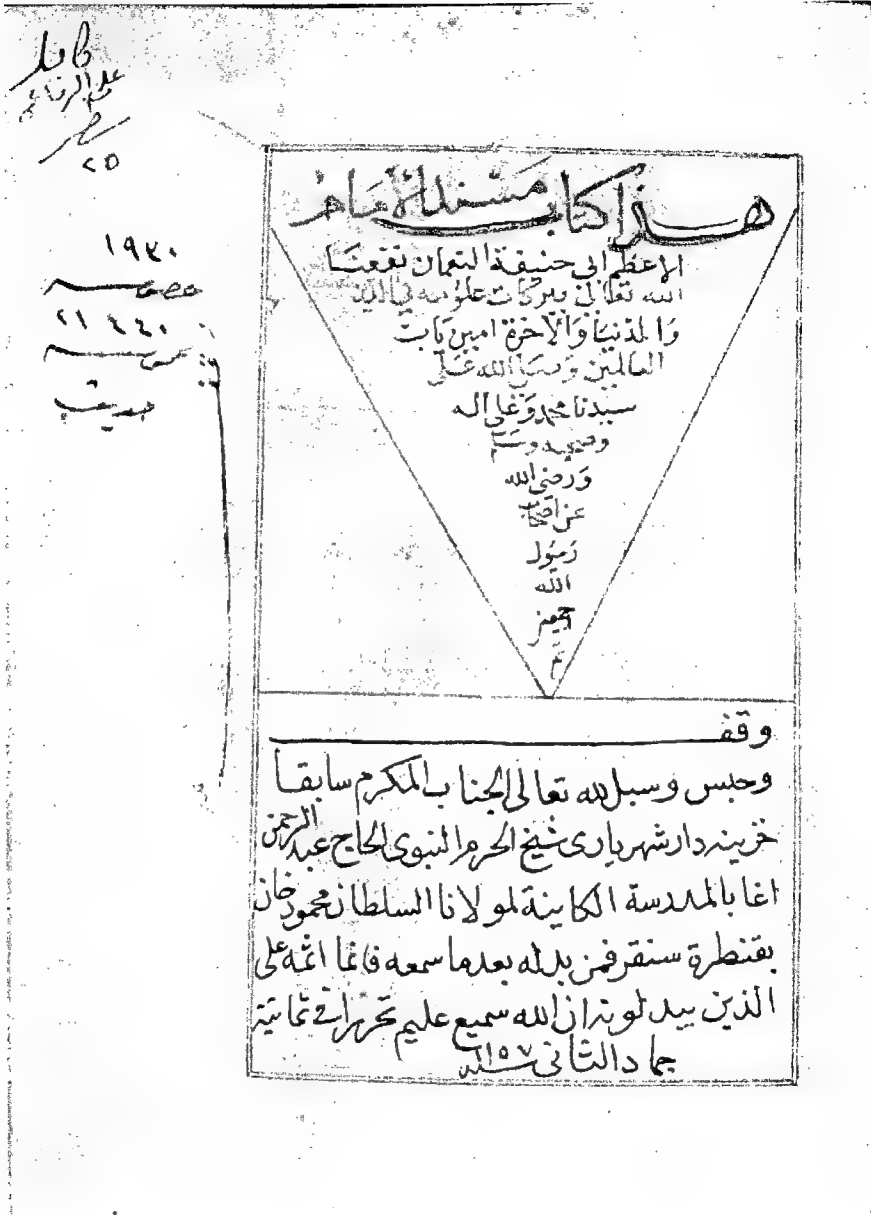 هذا كتاب مسند الامام
الاعظم ابى حنيفة النعمان نفعنا
الله تعالى ببركات علومه في الدين
والدنيا والآخرة امين يا رب
العالمين وصلى الله على
سيدنا محمد وعلى اله
وصحبه وسلم
ورضى الله
عن اصحاب
رسول
الله
اجمعين
م
وقف
وحبس وسبل لله تعالى الجناب المكرم سابقا
خزينه دار شهريارى شيخ الحرم النبوى الحاج عبد الرحمن
اغا بالمدرسة الكاينة لمولانا السلطان محمود خان
بقنطرة سنقر فمن بدله بعدما سمعه فانما اثمه على
الذين يبدلونه ان الله سميع عليم تحريرا في ثمانية
جماد الثانى سنة ١١٥٧
٢٥
١٩٣٠
خصوصيه
٢١٤٤٠
عموميه
حديث